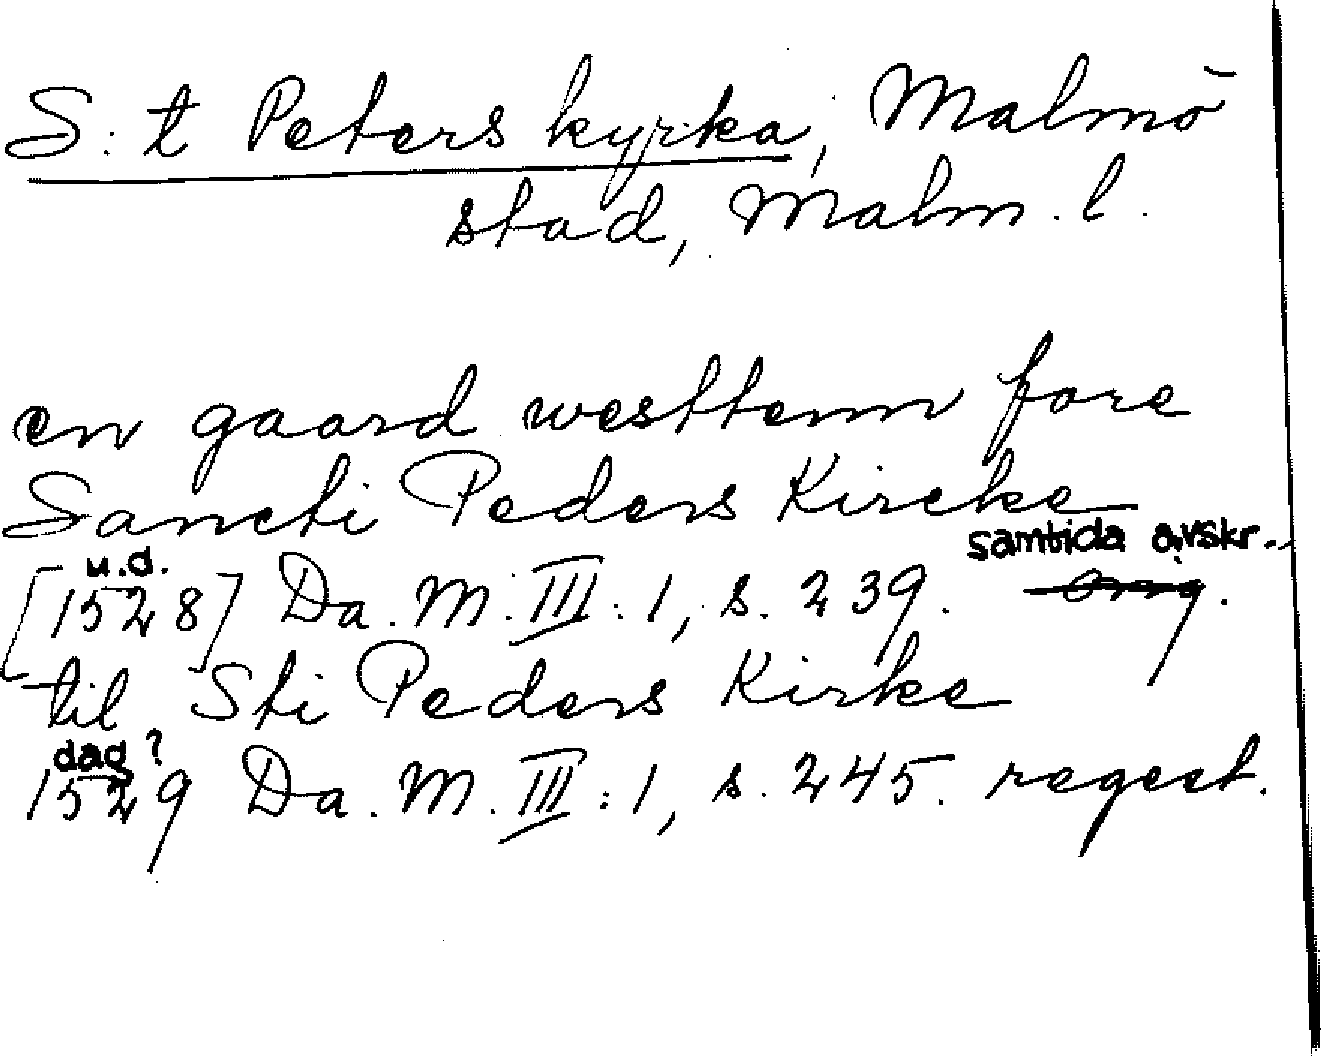 S:t Peters kyrka, Malmö
stad, Malm. l.
en gaard westtenn fore
Sancti Peders Kircke
samtida avskr.
u.d.
[1528] Da. M. III: 1, s. 239. orig.
til Sti Peders Kirke
dag?
1529 Da. M. III: 1, s. 245. regest.